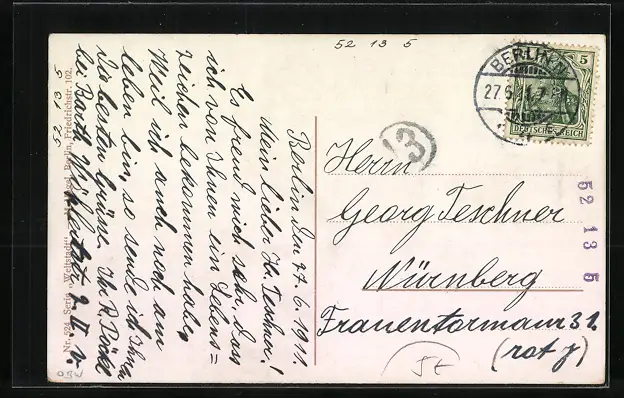 52 13 5
BERLIN N
27.6.11.7
5
DEUTSCHES REICH
13
Berlin den 27. 6. 1911.
Mein lieber H. Teschner!
Es freud mich sehr, das
ich von Ihnen ein Lebens=
zeichen bekommen habe,
Weil ich auch noch am
leben bin, so sende ich Ihnen
die besten Grüße. Ihr R. Böckl
bei Barth
Herrn
Georg Teschner
Nürnberg
Frauentormauer 32
(rot)
St
52 13 5
Nr. 524 Serie „Weltstadt“ Berlin, Friedrichstr. 102.
5 31 25